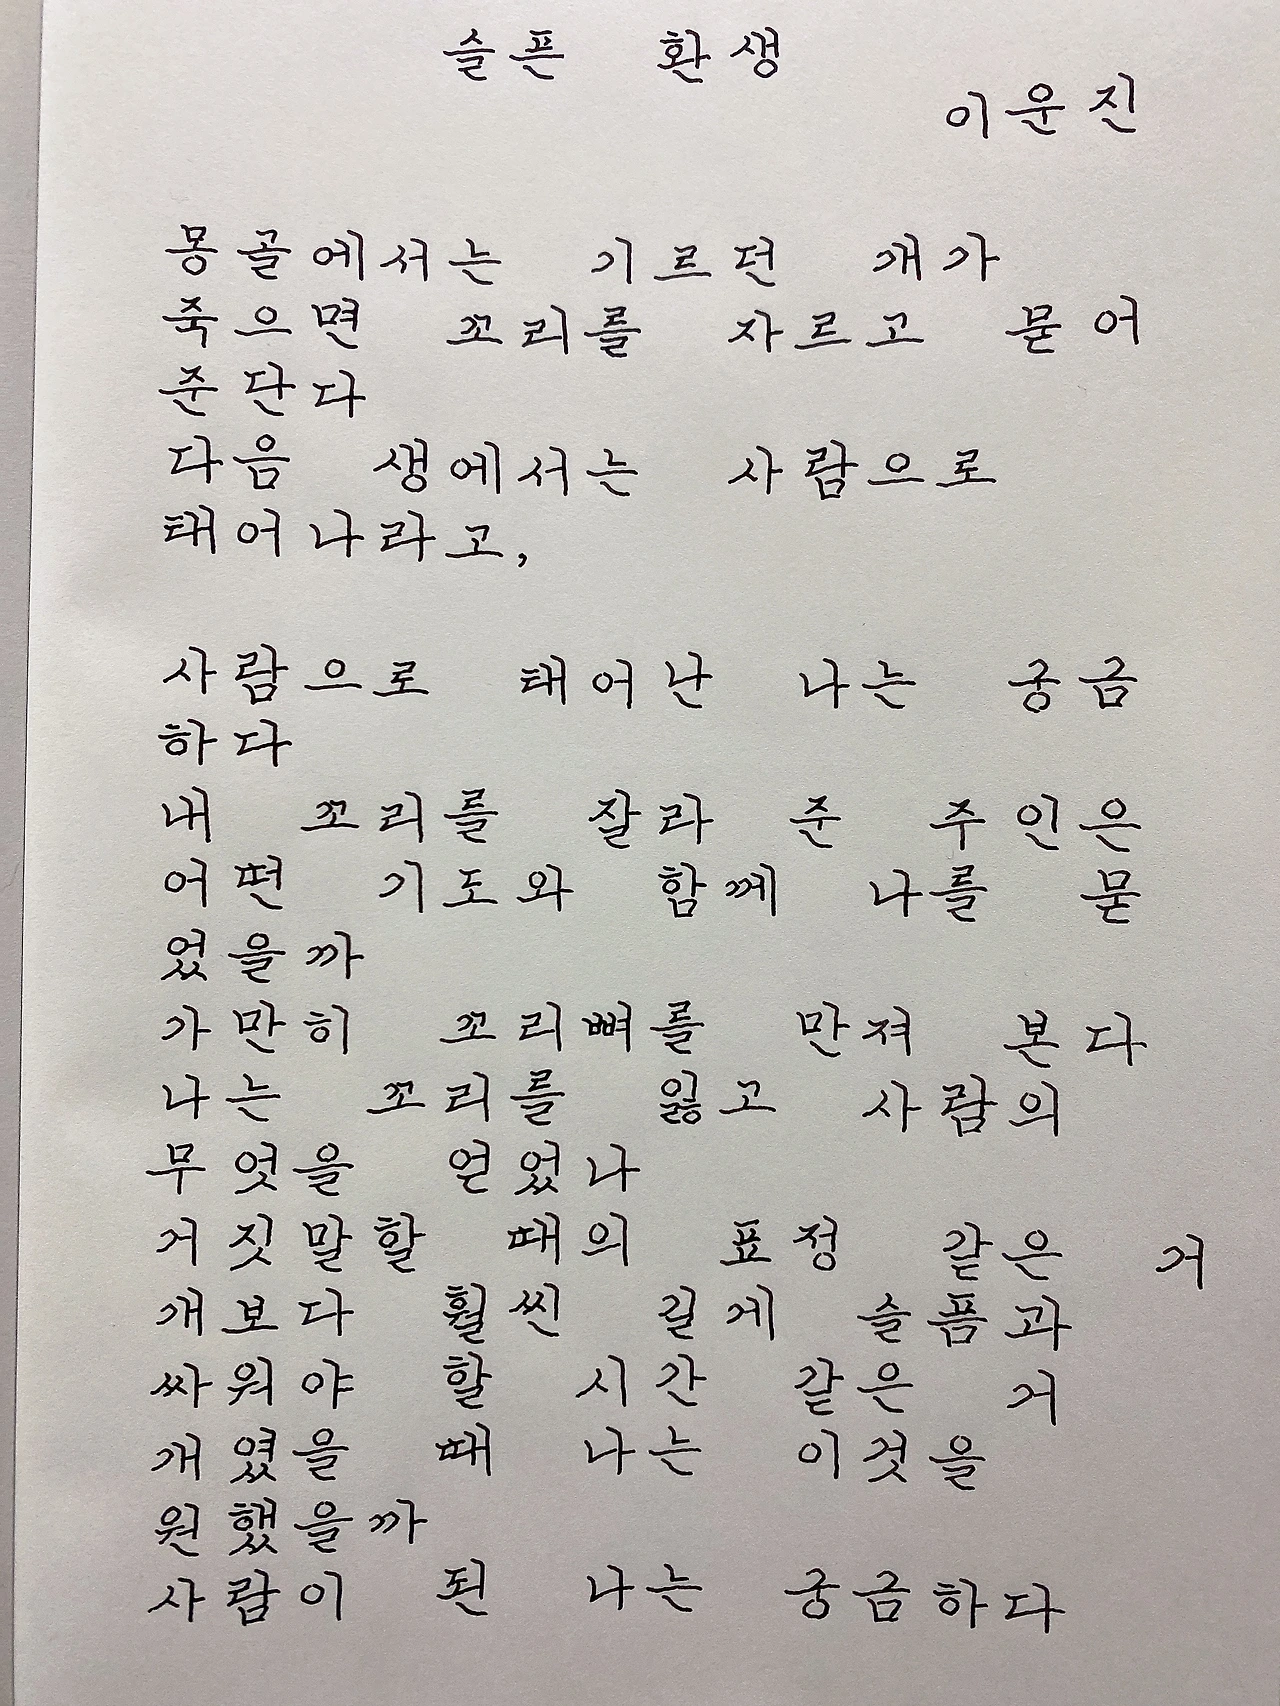 슬픈 환생
이운진
몽골에서는 기르던 개가
죽으면 꼬리를 자르고 묻어
준단다
다음 생에서는 사람으로
태어나라고,
사람으로 태어난 나는 궁금
하다
내 꼬리를 잘라 준 주인은
어떤 기도와 함께 나를 묻
었을까
가만히 꼬리뼈를 만져 본다
나는 꼬리를 잃고 사람의
무엇을 얻었나
거짓말할 때의 표정 같은 거
개보다 훨씬 길게 슬픔과
싸워야 할 시간 같은 거
개였을 때 나는 이것을
원했을까
사람이 된 나는 궁금하다